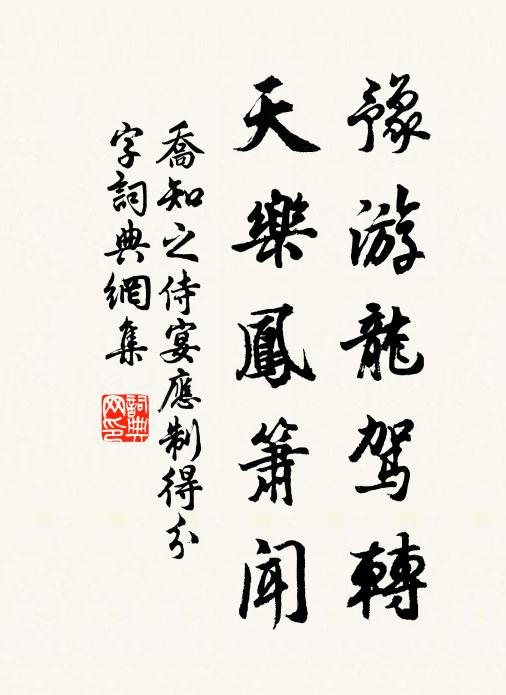 豫游龍駕轉
天樂鳳簫聞
喬知之侍宴應制得分
字詞典網集
詞典
网印